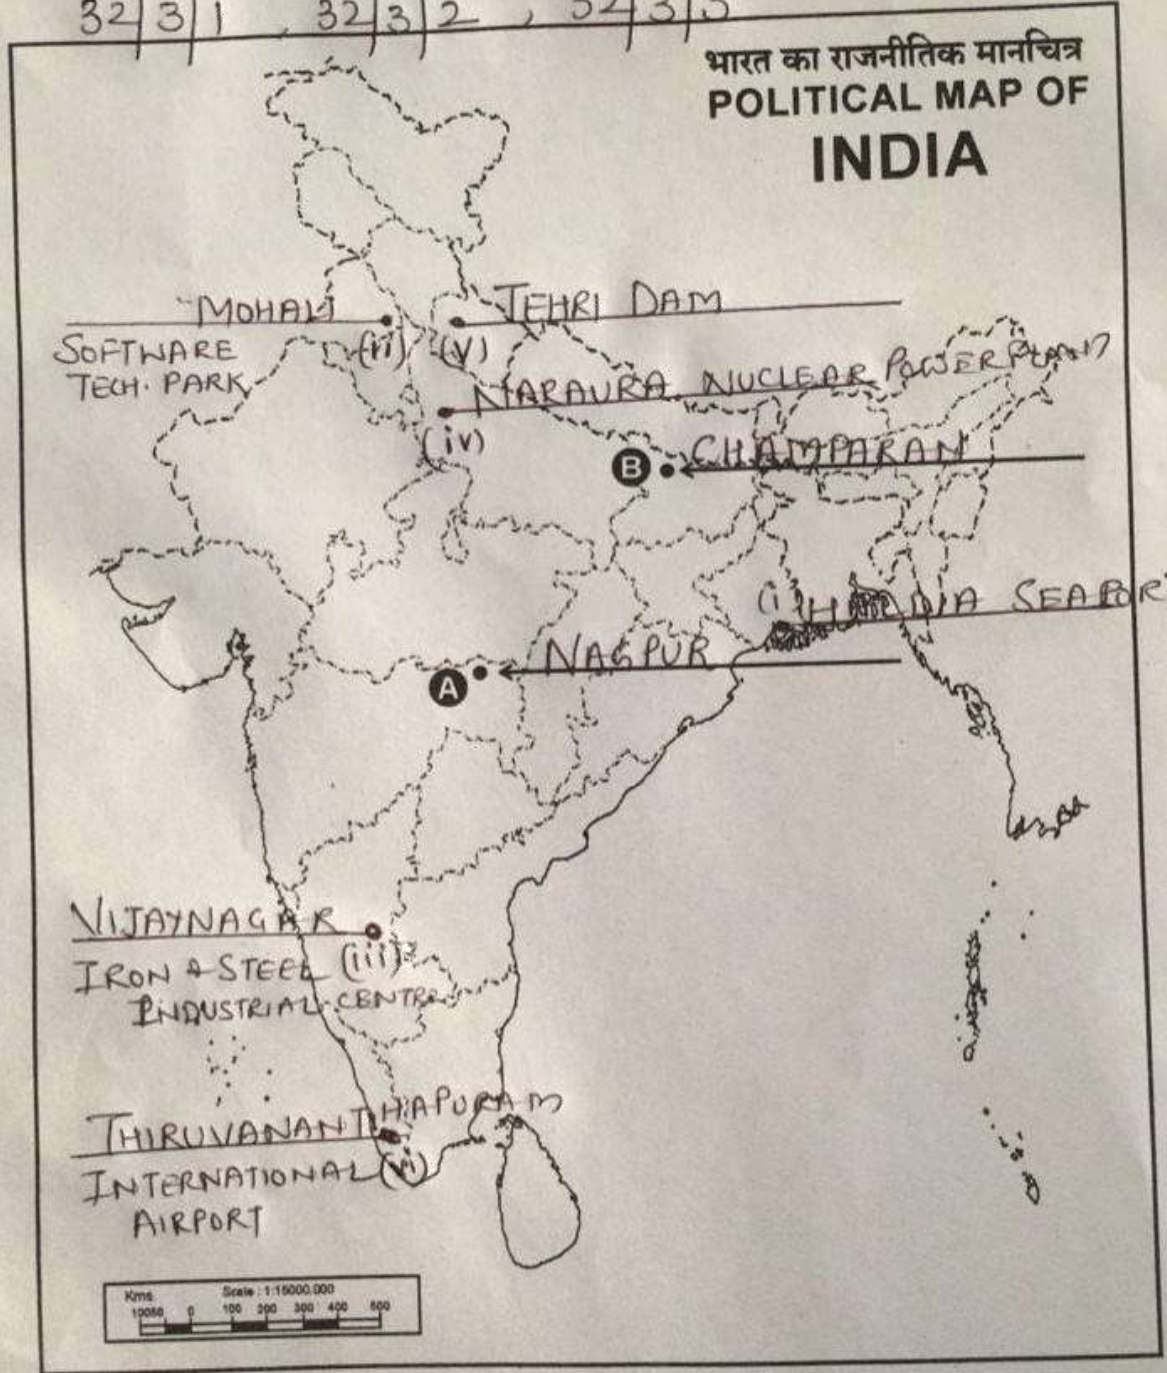 32/3/1 , 32/3/2 , 32/3/3
भारत का राजनीतिक मानचित्र
POLITICAL MAP OF
INDIA
MOHALI
TEHRI DAM
SOFTWARE
TECH. PARK
(ii) (v)
NARAURA NUCLEAR POWER PLANT
(iv)
B CHAMPARAN
(i) HALDIA SEAPORT
NAGPUR
A
VIJAYNAGAR
IRON & STEEL (iii)
INDUSTRIAL CENTRE
THIRUVANANTHAPURAM
INTERNATIONAL (vi)
AIRPORT
Kms. Scale : 1:15000.000
10050 0 100 200 300 400 500